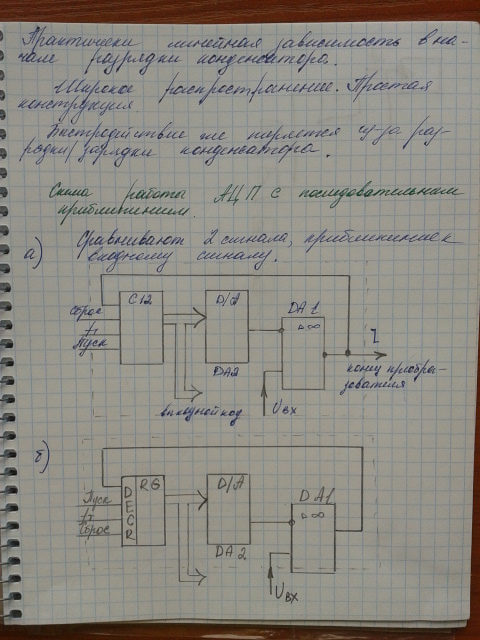 Практически линейная зависимость в на-
чале разрядки конденсатора.
Широкое распространение. Простая
конструкция
Быстродействие же теряется из-за раз-
рядки/зарядки конденсатора.
Схема работы АЦП с последовательным
приближением.
Сравнивают 2 сигнала, приближение к
входному сигналу.
а)
сброс
fт
Пуск
СТ2
D/A
DA2
DA1
▷∞
выходной код
Uвх
конец преобра-
зователя
б)
Пуск
fт
Сброс
D
E
C
R
RG
D/A
DA2
DA1
▷∞
Uвх